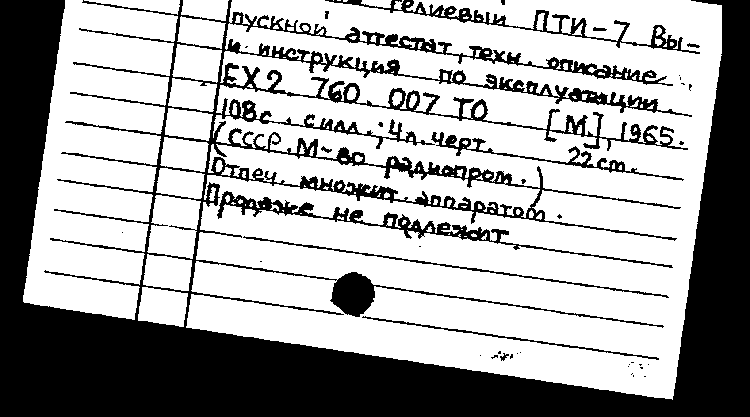 гелиевый ПТИ-7. Вы-
пускной аттестат, техн. описание
и инструкция по эксплуатации.
ЕХ2. 760. 007 ТО. [М.], 1965.
108с. с илл.; 4л. черт. 22 cm.
(СССР. М-во радиопром.)
Отпеч. множит. аппаратом.
Продаже не подлежит.